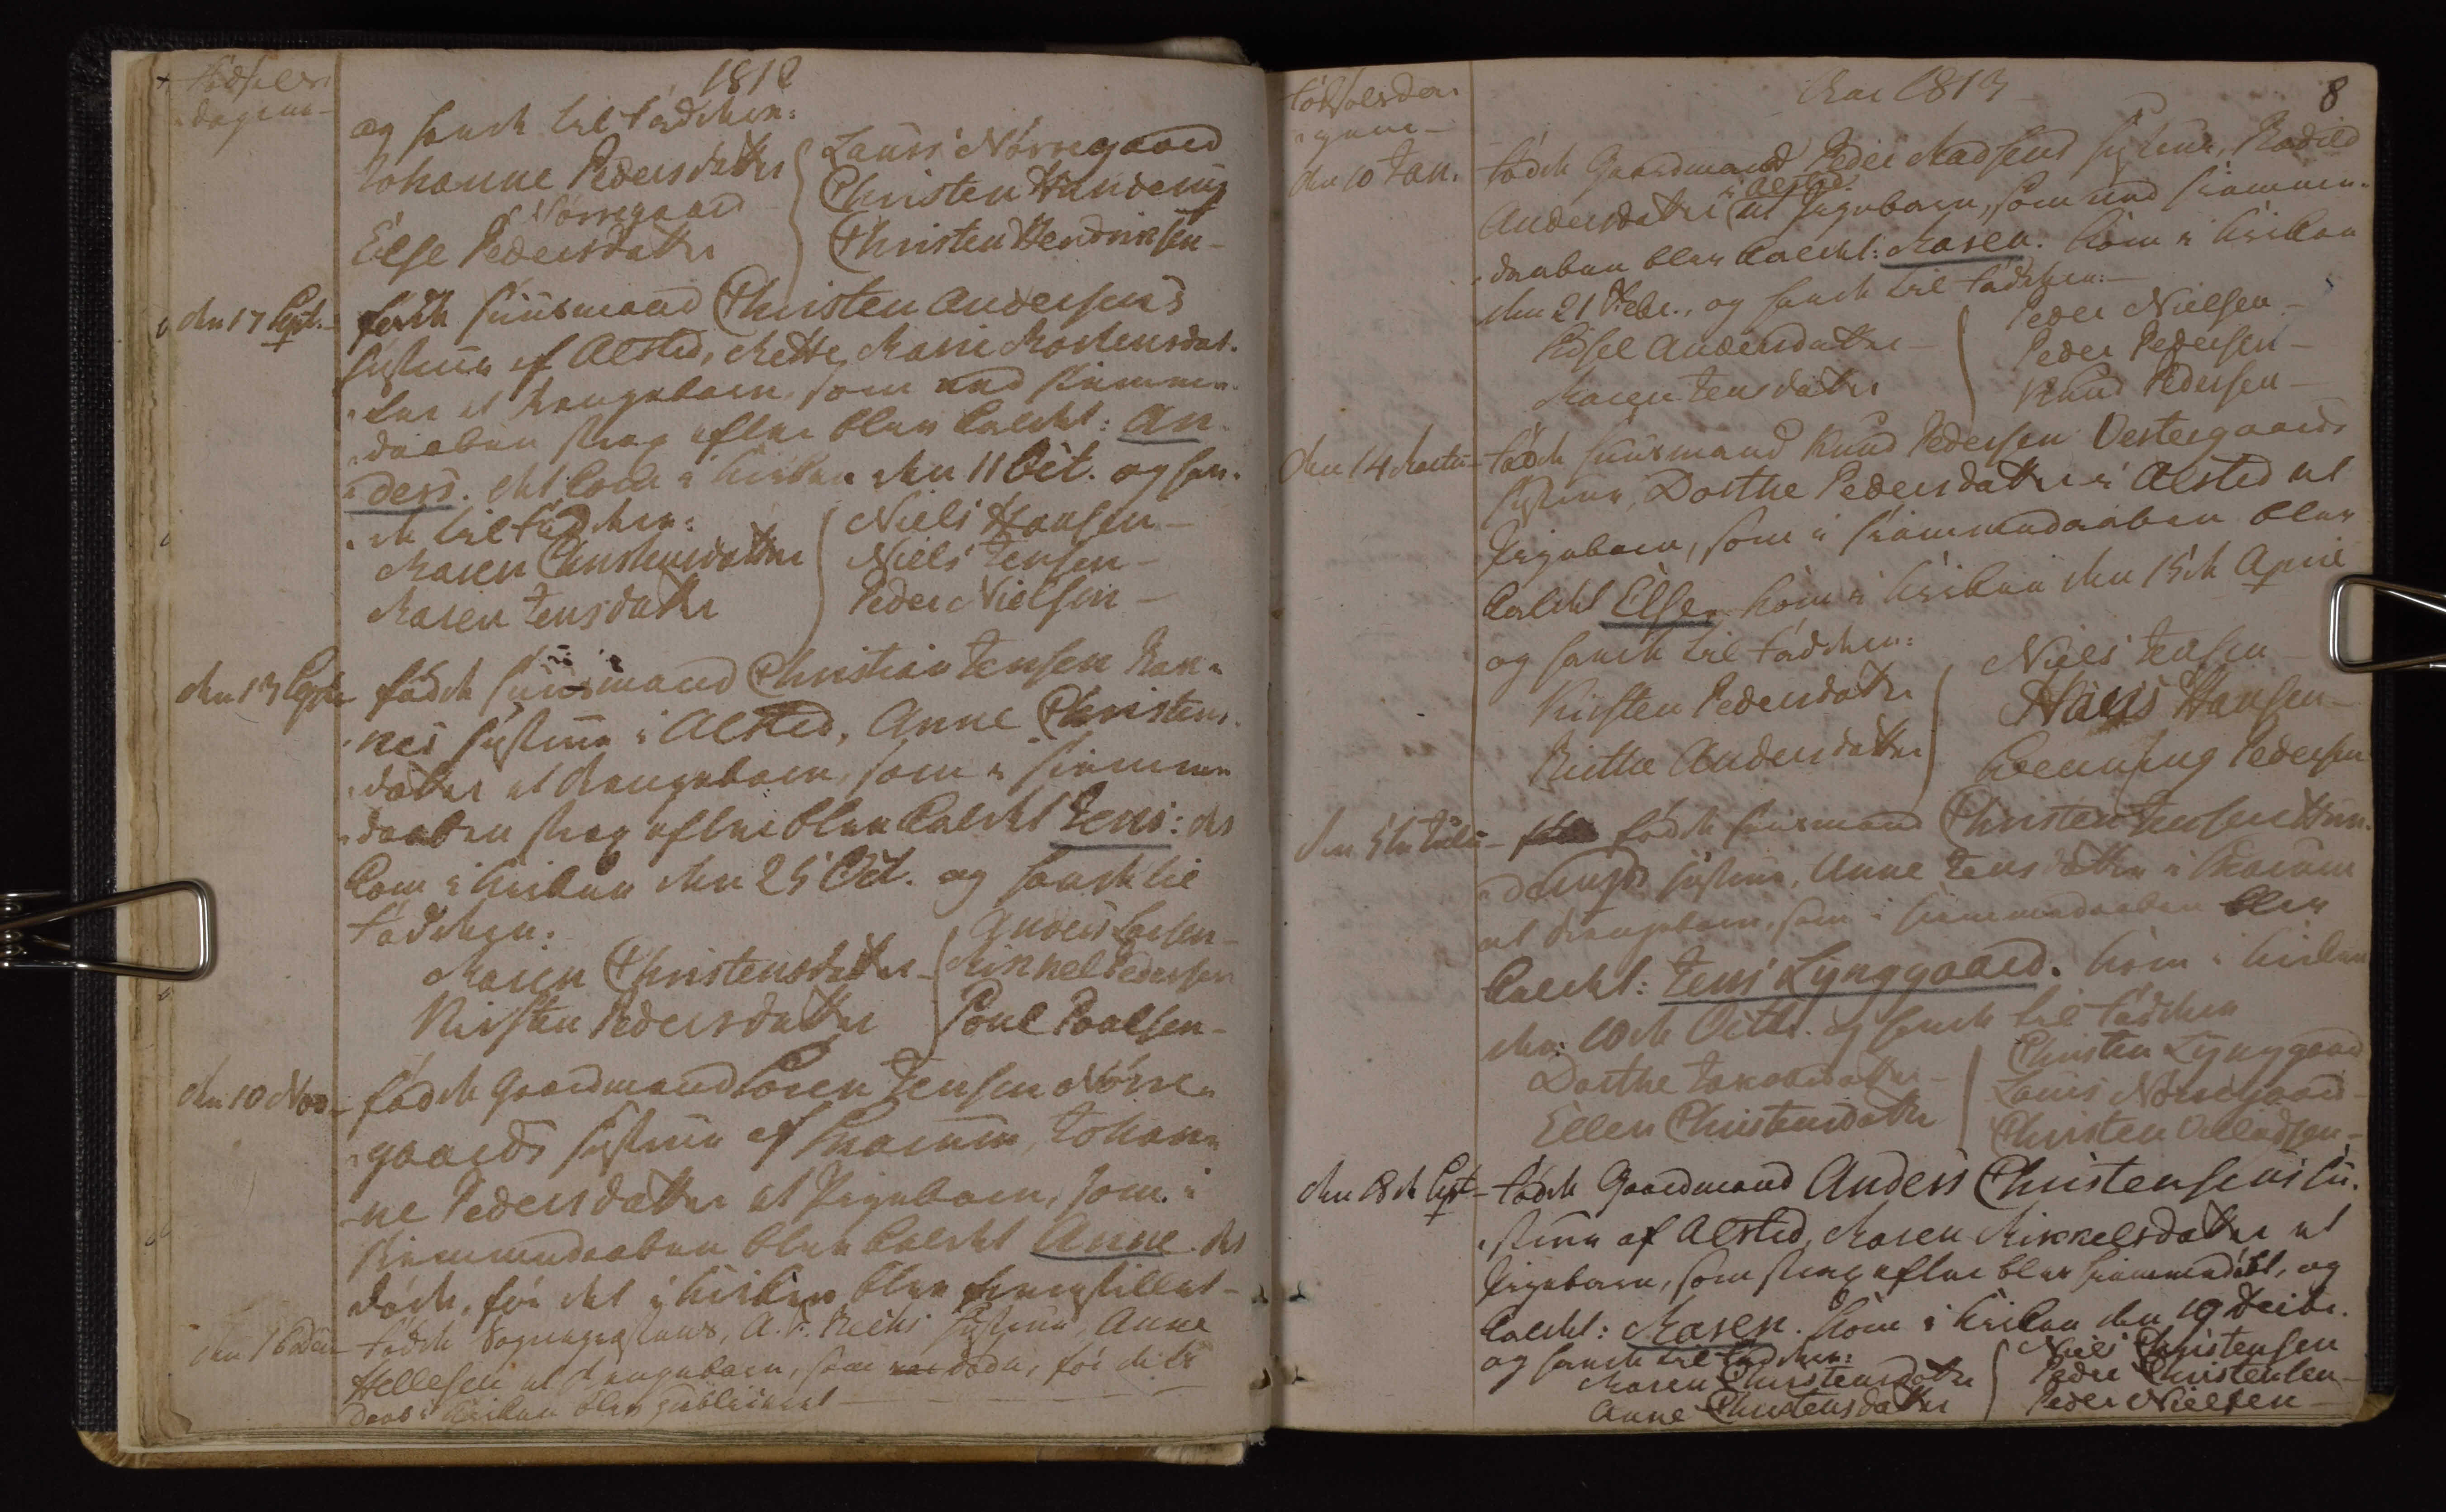 Födsels
dagene
1812
og havde til Faddere:
Johanne Pedersdatter
Nörregaard
Else Pedersdatter
Laurs Nörregaard
Christen Handerup
Christen Hendriksen
den 17 Sept.
fødte Huusmand Christen Andersens
Hustrue af Alsted, Mette Marie Mortensdat-
ter et Drengebarn, som ved Hiemme-
daaben strax efter blev kaldet: An-
ders. det kom i Kirken den 11 Oct. og hav-
de til Faddere:
Maren Christensdatter
Maren Jensdatter
Niels Hansen
Niels Jensen
Peder Nielsen
den 13 Sept.
fødte Huusmand Christian Jensen
Hustrue i Alsted, Anne Christens-
datter et Drengebarn, som i Hiemme-
daaben strax efter blev kaldet Jens: det
kom i Kirken den 25 Oct. og havde til
Faddere:
Maren Christensdatter
Kirsten Pedersdatter
Anders Larsen
Mikkel Pedersen
Poul Poulsen
den 10 Nov.
fødte Gaardmand Sören Jensen Nörre-
gaards Hustrue af Johan-
ne Pedersdatter et Pigebarn, som i
Hiemmedaaben blev kaldet Anne. det
döde, før det i Kirken blev fremstillet
den 16
fødte Sognepræstens, A. Hustrue, Anne
Hellesen et Drengebarn, som döde, før dets
Daab i Kirken blev publiceret
Födselsda-
gene
Aar 1813
8
den 10 Jan.
fødte Gaardmand Peder Madsens Hustrue,
Andersdatter i Alsted et Pigebarn, som ved Hiemme-
daaben blev kaldet: Maren. kom i Kirken
den 21 Febr., og havde til Faddere:
Sidsel Andersdatter
Maren Jensdatter
Peder Nielsen
Peder Pedersen
Knud Pedersen
den 14 Martii
fødte Huusmand Knud Pedersen Vestergaards
Hustrue, Dorthe Pedersdatter i Alsted et
Pigebarn, som i Hiemmedaaben blev
kaldet Else. kom i Kirken den 15de April
og havde til Faddere:
Kirsten Pedersdatter
Andersdatter
Niels Jensen
Hans Hansen
Henning Pedersen
den 5te Julii
fødte Huusmand Christen Jensen Han-
derups Hustrue, Anne Jensdatter i
et Drengebarn, som i Hiemmedaaben blev
kaldet: Jens Lynggaard. kom i Kirken
den 10de Octbr. og havde til Faddere
Dorthe Jakobsdatter
Ellen Christensdatter
Christen Lynggaard
Laurs Nörregaard
Christen
den 18de Sept.
fødte Gaardmand Anders Christensens Hu-
strue af Alsted, Maren Mikkelsdatter et
Pigebarn, som strax efter blev hiemmedöbt, og
kaldet: Maren. kom i Kirken den 19
og havde til Faddere:
Maren Christensdatter
Anne Christensdatter
Niels Christensen
Peder Christensen
Peder Nielsen